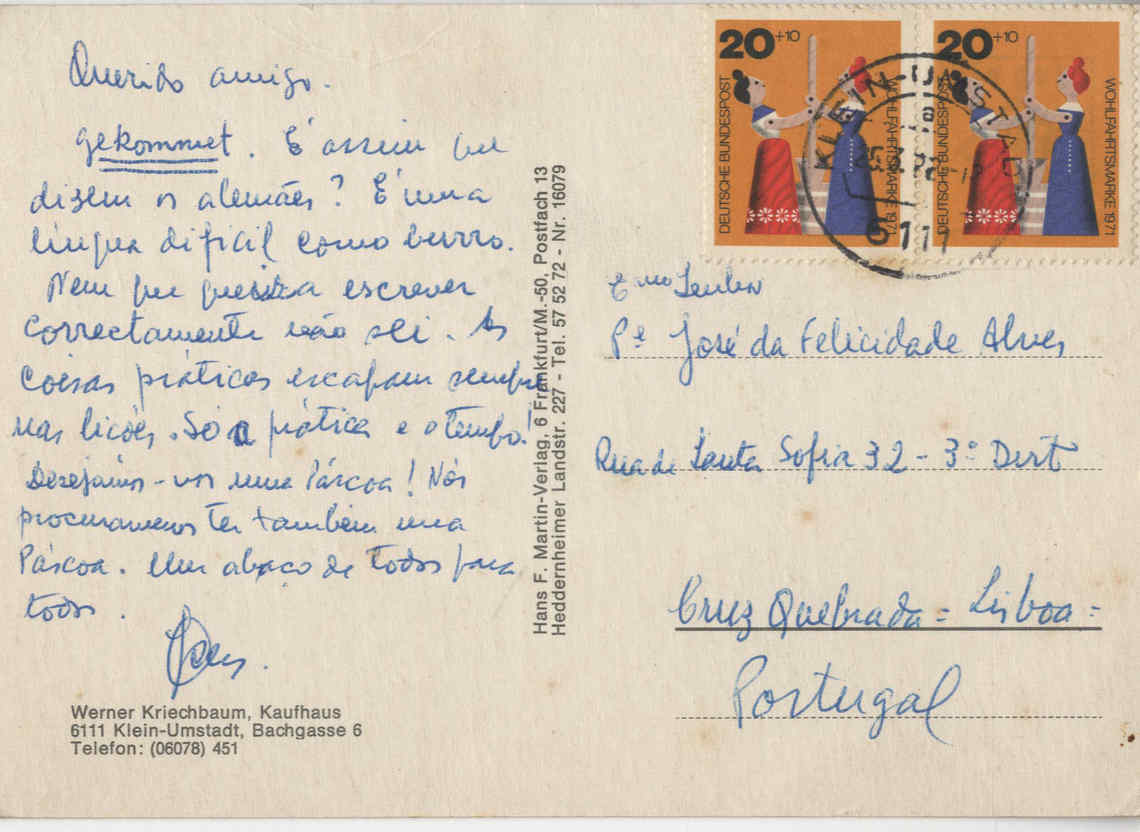 Querido amigo.
gekommet. É assim que
dizem os alemães? É uma
língua dificil como burro.
Nem que queira escrever
correctamente não sei. As
coisas práticas escapam sempre
nas lições. Só a prática e o tempo!
Desejamos-vos uma Páscoa! Nós
procuraremos ter também uma
Páscoa. Um abaço de todos para
todos.
Werner Kriechbaum, Kaufhaus
6111 Klein-Umstadt, Bachgasse 6
Telefon: (06078) 451
Hans F. Martin-Verlag, 6 Frankfurt/M.-50, Postfach 13
Heddernheimer Landstr. 227 - Tel. 57 52 72 - Nr. 16079
20+10
DEUTSCHE BUNDESPOST
WOHLFAHRTSMARKE 1971
20+10
DEUTSCHE BUNDESPOST
WOHLFAHRTSMARKE 1971
KLEIN-UMSTADT
a
6111
Emo Senhor
Pe José da Felicidade Alves
Rua de Santa Sofia 32 - 3º Dirt
Cruz Quebrada = Lisboa =
Portugal